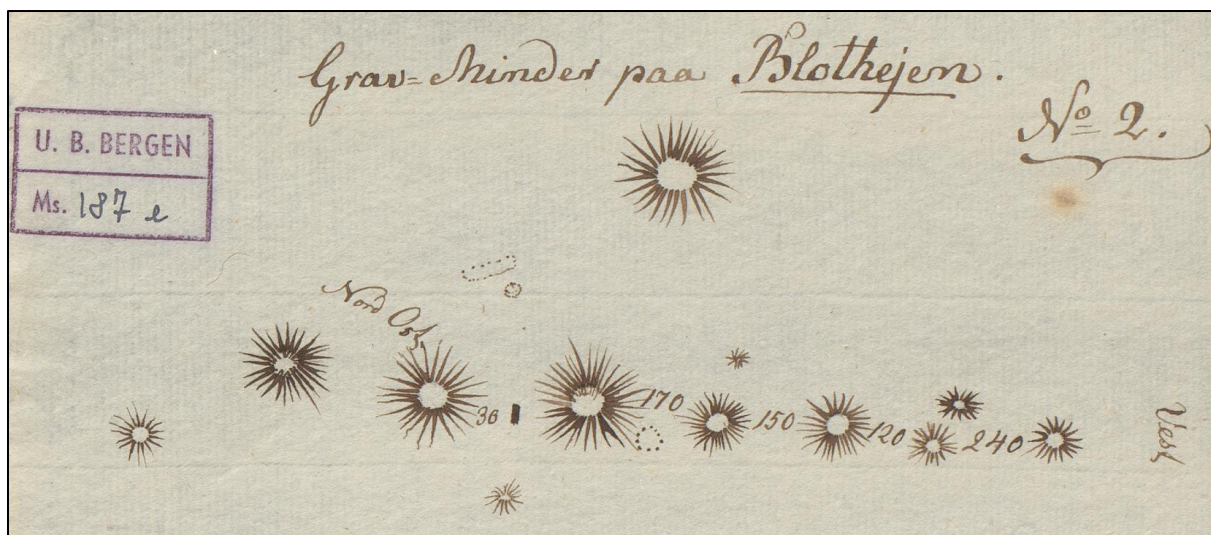 Grav=Minder paa Blothejen.
No 2.
U. B. BERGEN
Ms. 187 e
Nord Ost
30 170 150 120 240
Vest